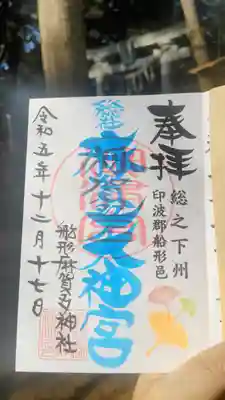 奉拝
総之下州
印波郡船形邑
麻賀多大神宮
船形麻賀多神社
令和五年十二月十七日